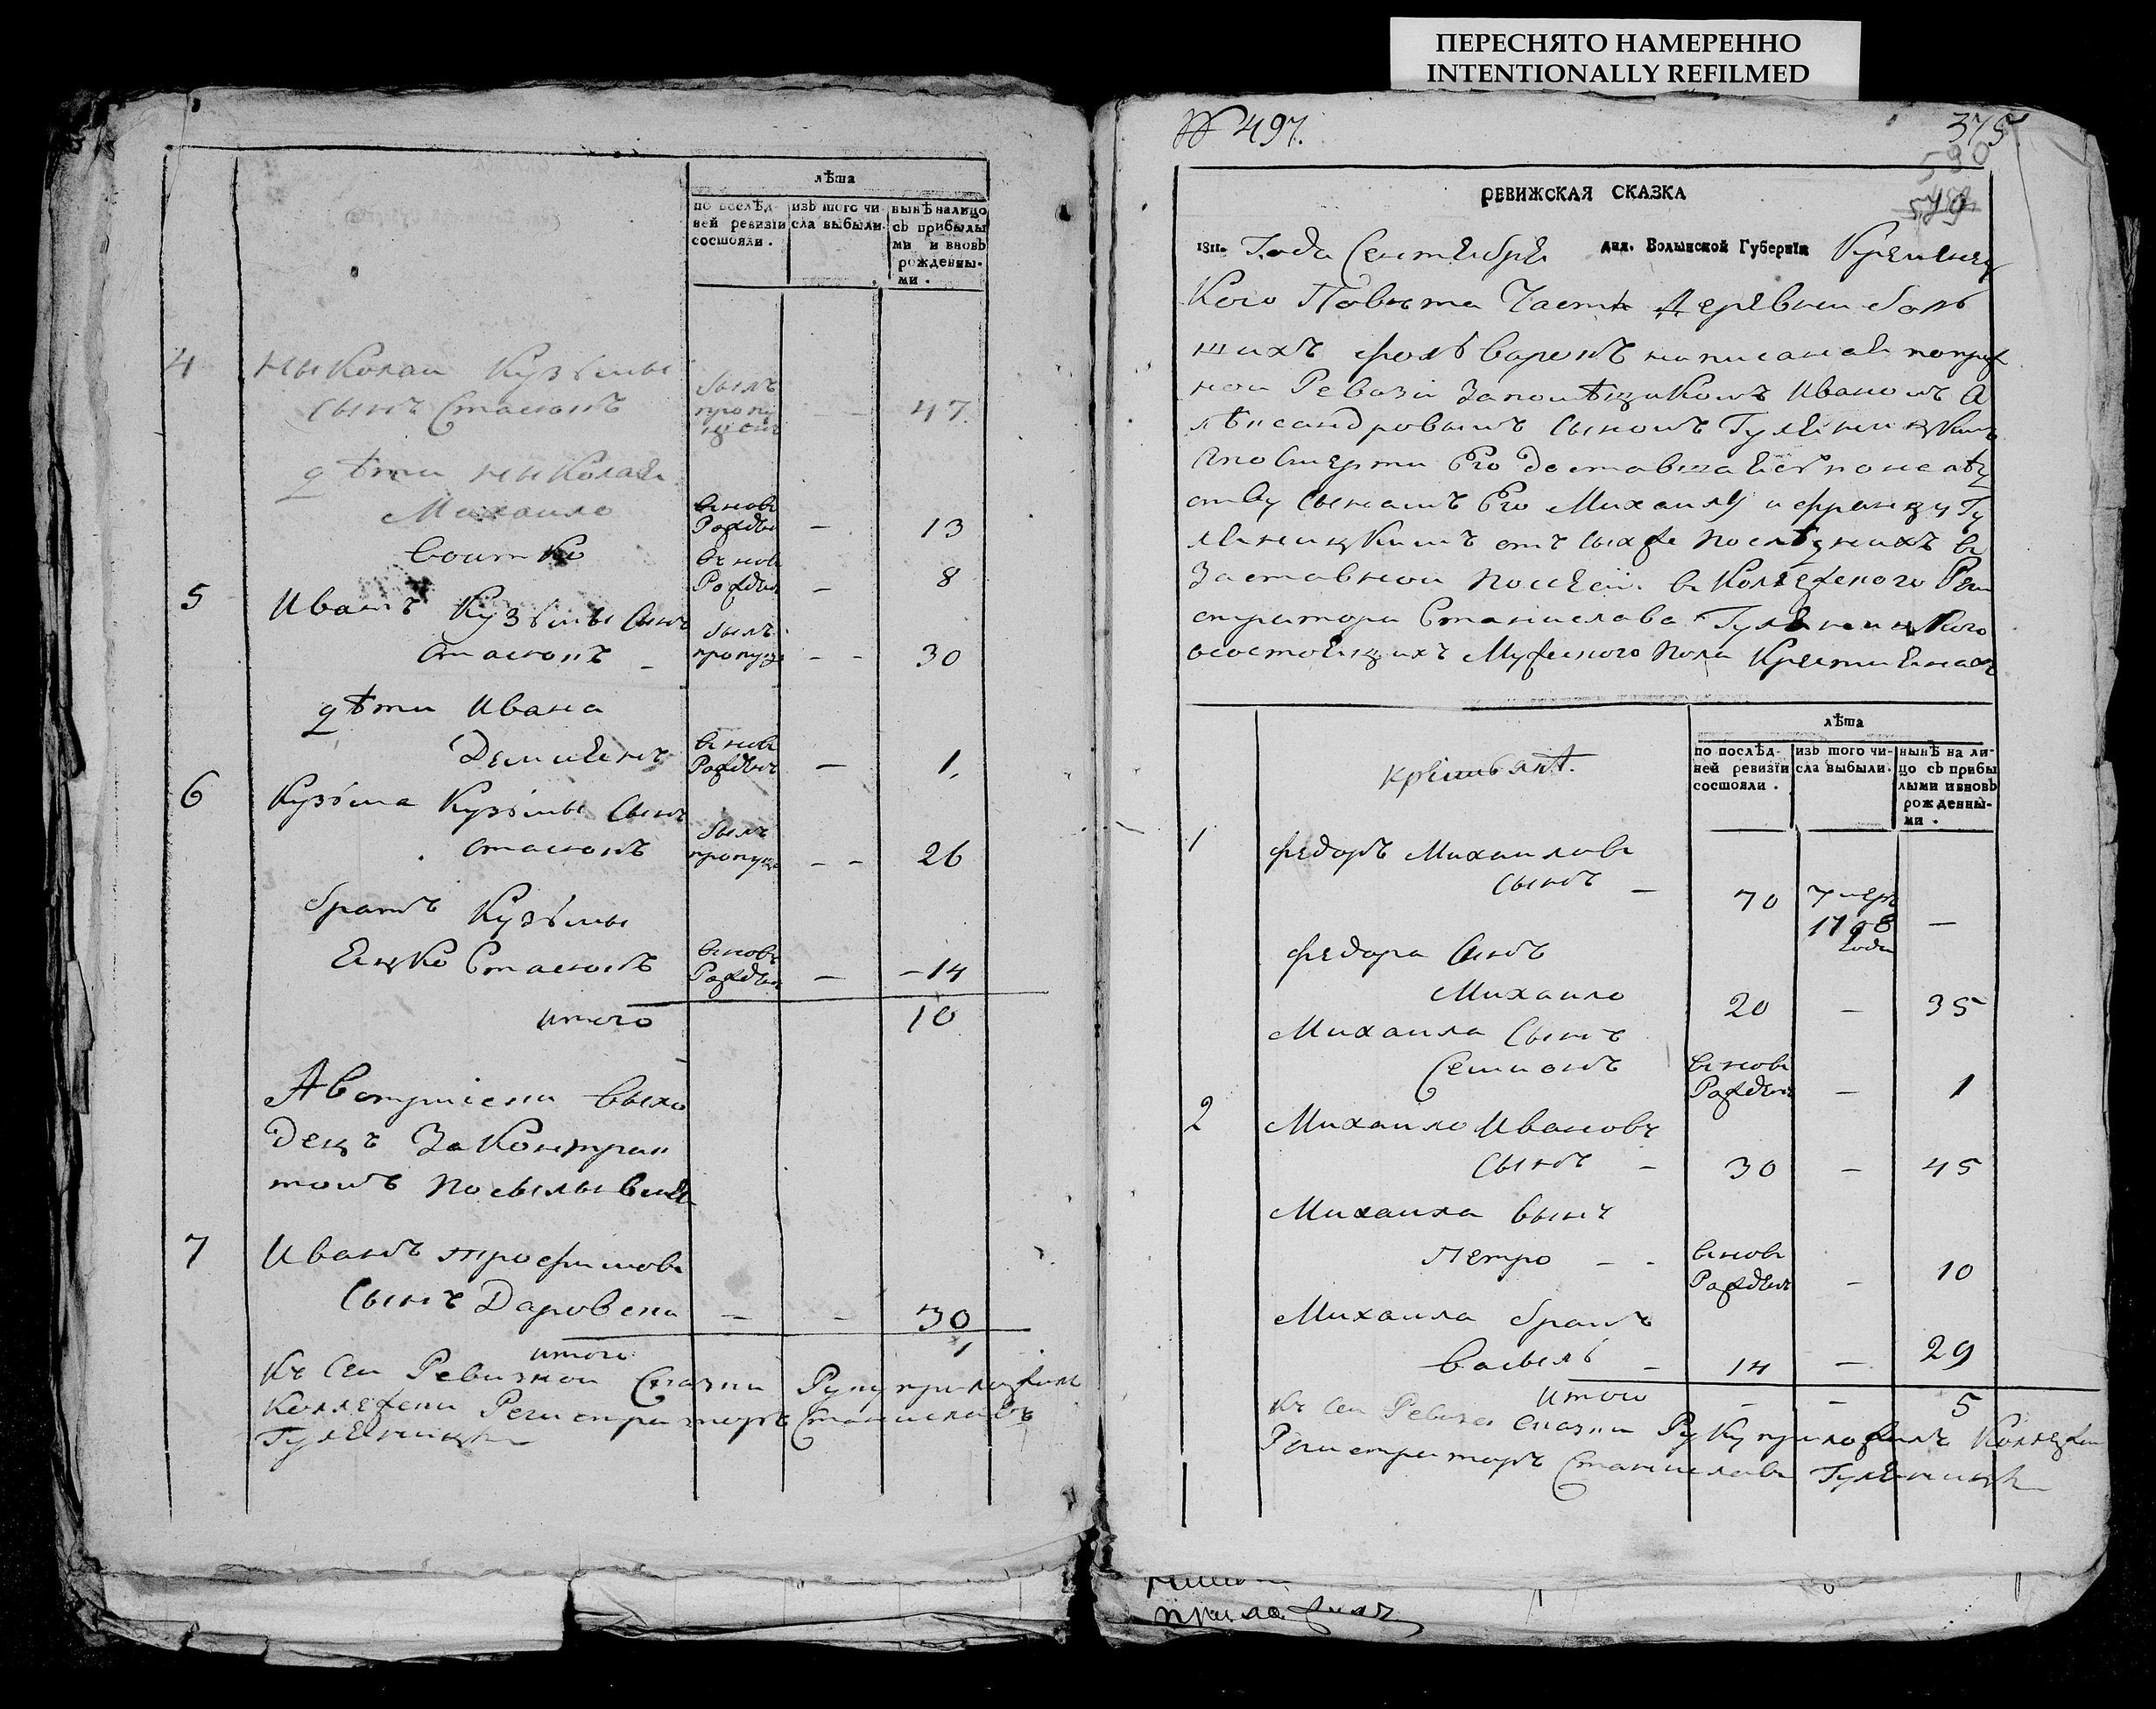 ПЕРЕСНЯТО НАМЕРЕННО
INTENTIONALLY REFILMED
лѣта
по послѣд-
ней ревизіи
состояли.
изъ того чи-
сла выбыли.
нынѣ налицо
съ прибылы
ми и вновь
рожденны-
ми.
4 Николаи Кузьмы
сынъ Стасюкъ
былъ
пропу
щенъ
— — 47
дѣти Николая
Михаило
вновь
Рожденъ
— 13
Воитко
вновь
Рожден
— 8
5 Иванъ Кузьмы сынъ
Стасюкъ —
былъ
пропуще
— — 30
дѣти Ивана
Демиянъ
вновь
Рожденъ
— 1.
6 Кузьма Кузьмы Сынъ
Стасюкъ
былъ
пропуще
— — 26
братъ Кузьмы
Яцко Стасюкъ
вновь
Рожден
— — 14
итого 10
Австрийски выхо
децъ За Контрак
томъ
7 Иванъ Трофимовъ
сынъ Даровски — — 30
итого 1
Къ сеи Ревизкои Сказки Руку приложилъ
Колежски Регистраторъ Станиславъ
Гуляницки
№ 497.
375
590
579
РЕВИЖСКАЯ СКАЗКА
1811. Года Сентября дня. Волынской Губерніи Кременец
кого Повѣта Части Деревни боль
шихъ фольварокъ написаная попреж
нои Ревизіи Запомѣщикомъ Иваномъ А
лѣксандровымъ Сыномъ Гуляницкимъ
апосмерти Его доставшаяся понаслѣд
ству сынамъ Его Михаилу и францу Гу
ляницкимъ отъ сыхже послѣднихъ в
Заставнои Посесіи в Колежского Реги
стратора Станислава Гуляницкого
осостоящихъ Мужеского Пола Крестиянахъ
лѣта
по послѣд-
ней ревизіи
состояли.
изъ того чи-
сла выбыли.
нынѣ на ли-
цо съ прибы
лыми ивновь
рожденны-
ми.
1 федоръ Михаиловъ
сынъ — 70
умеръ
1798
года
—
федора Сынъ
Михаило 20 — 35
Михаила Сынъ
Семионъ
вновь
Рожденъ
— 1
2 Михаило Ивановъ
сынъ — 30 — 45
Михаила сынъ
Петро — -
вновь
Рожденъ
— 10
Михаила братъ
Василь — 14 — 29
Итого — — 5
Къ сеи Ревизкои сказки Руку приложилъ Колежски
Регистраторъ Станиславъ Гуляницки
приложилъ